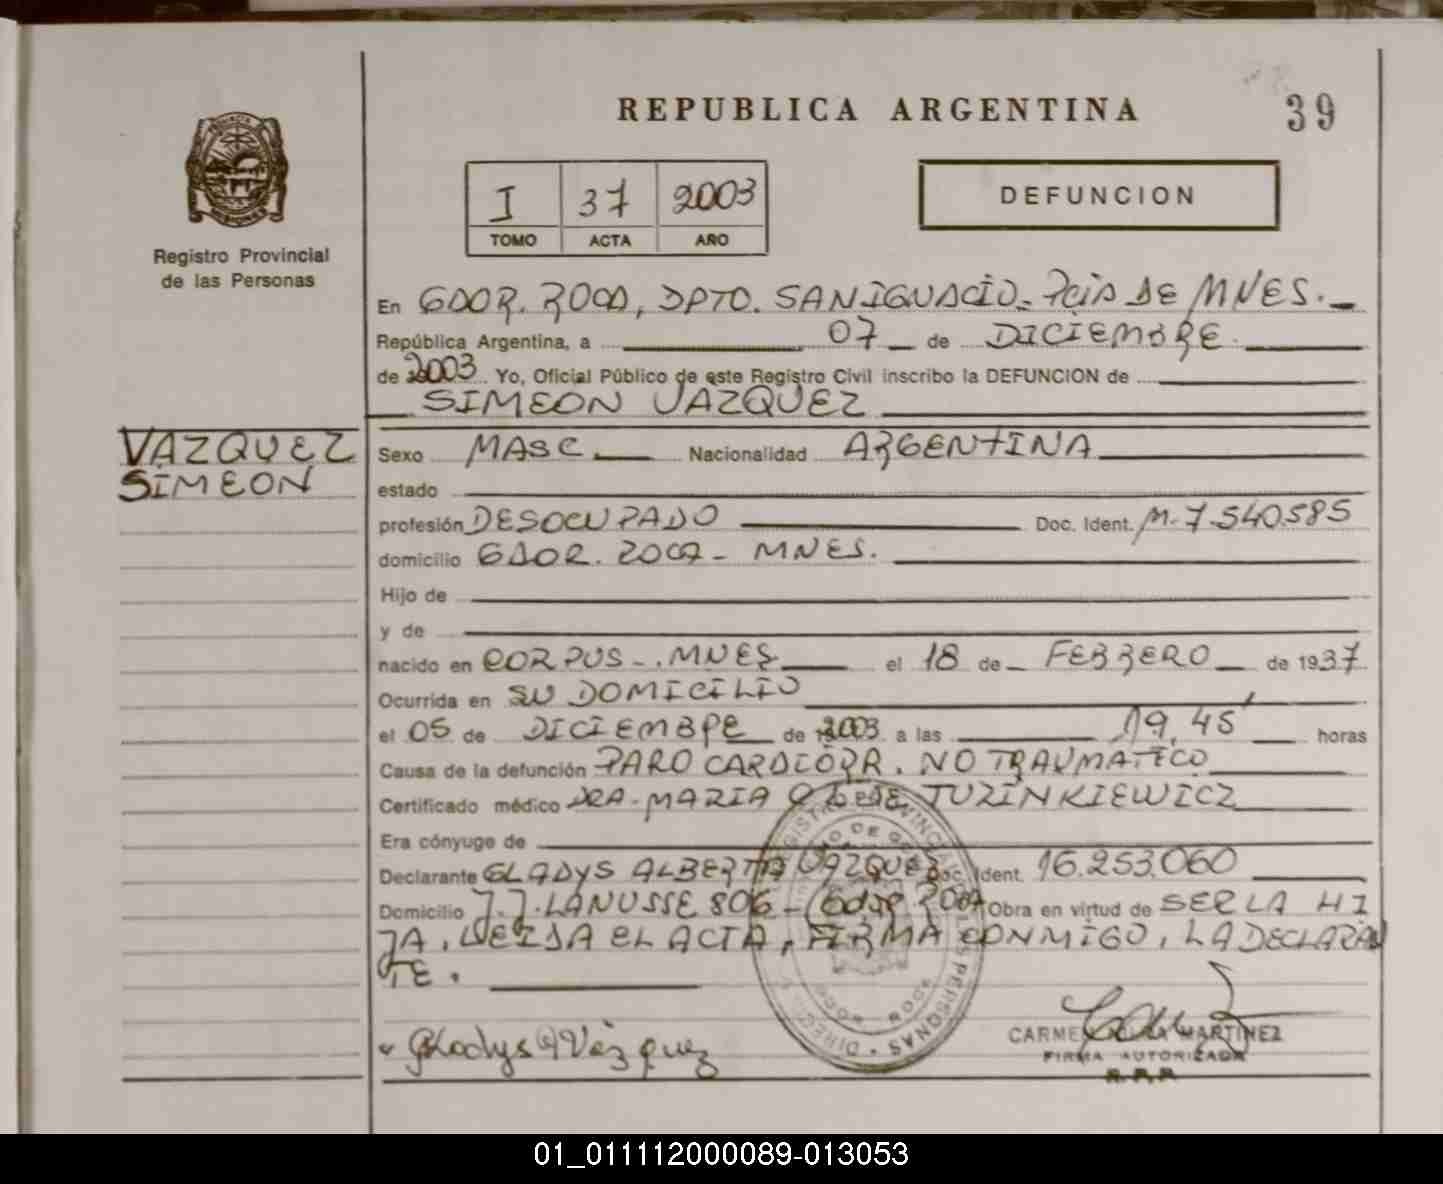 REPUBLICA ARGENTINA
39
I 37 2003
TOMO ACTA AÑO
DEFUNCION
Registro Provincial
de las Personas
En GDOR. ROCA, DPTO. SAN IGNACIO - PCIA DE MNES.
República Argentina, a 07 de DICIEMBRE
de 2003 Yo, Oficial Público de este Registro Civil inscribo la DEFUNCION de
SIMEON VAZQUEZ
VAZQUEZ
SIMEON
Sexo MASC Nacionalidad ARGENTINA
estado
profesión DESOCUPADO Doc. Ident. M. 7.540.585
domicilio GDOR. ROCA - MNES.
Hijo de
y de
nacido en CORPUS - MNES el 18 de FEBRERO de 1937
Ocurrida en SU DOMICILIO
el 05 de DICIEMBRE de 2003 a las 19,45' horas
Causa de la defunción PARO CARDIORR. NO TRAUMATICO
Certificado médico DRA. MARIA TURINKIEWICZ
Era cónyuge de
Declarante GLADYS ALBERTA VAZQUEZ Doc. Ident. 16.253.060
Domicilio J.J. LANUSSE 806 - Gdor Roca Obra en virtud de SER LA HI
JA, LEIDA EL ACTA, FIRMA CONMIGO, LA DECLARAN
TE.
Gladys A Vázquez
CARMEN MARTINEZ
FIRMA AUTORIZADA
R.P.P.
01_011112000089-013053